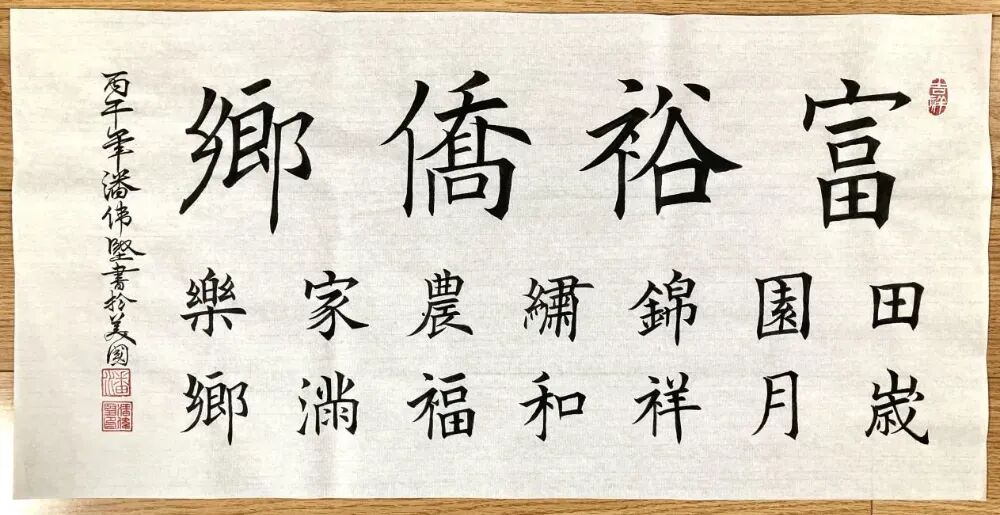 富裕僑鄉
田園錦繡農家樂
歲月祥和福滿鄉
丙午年潘偉堅書於美國
吉祥
潘